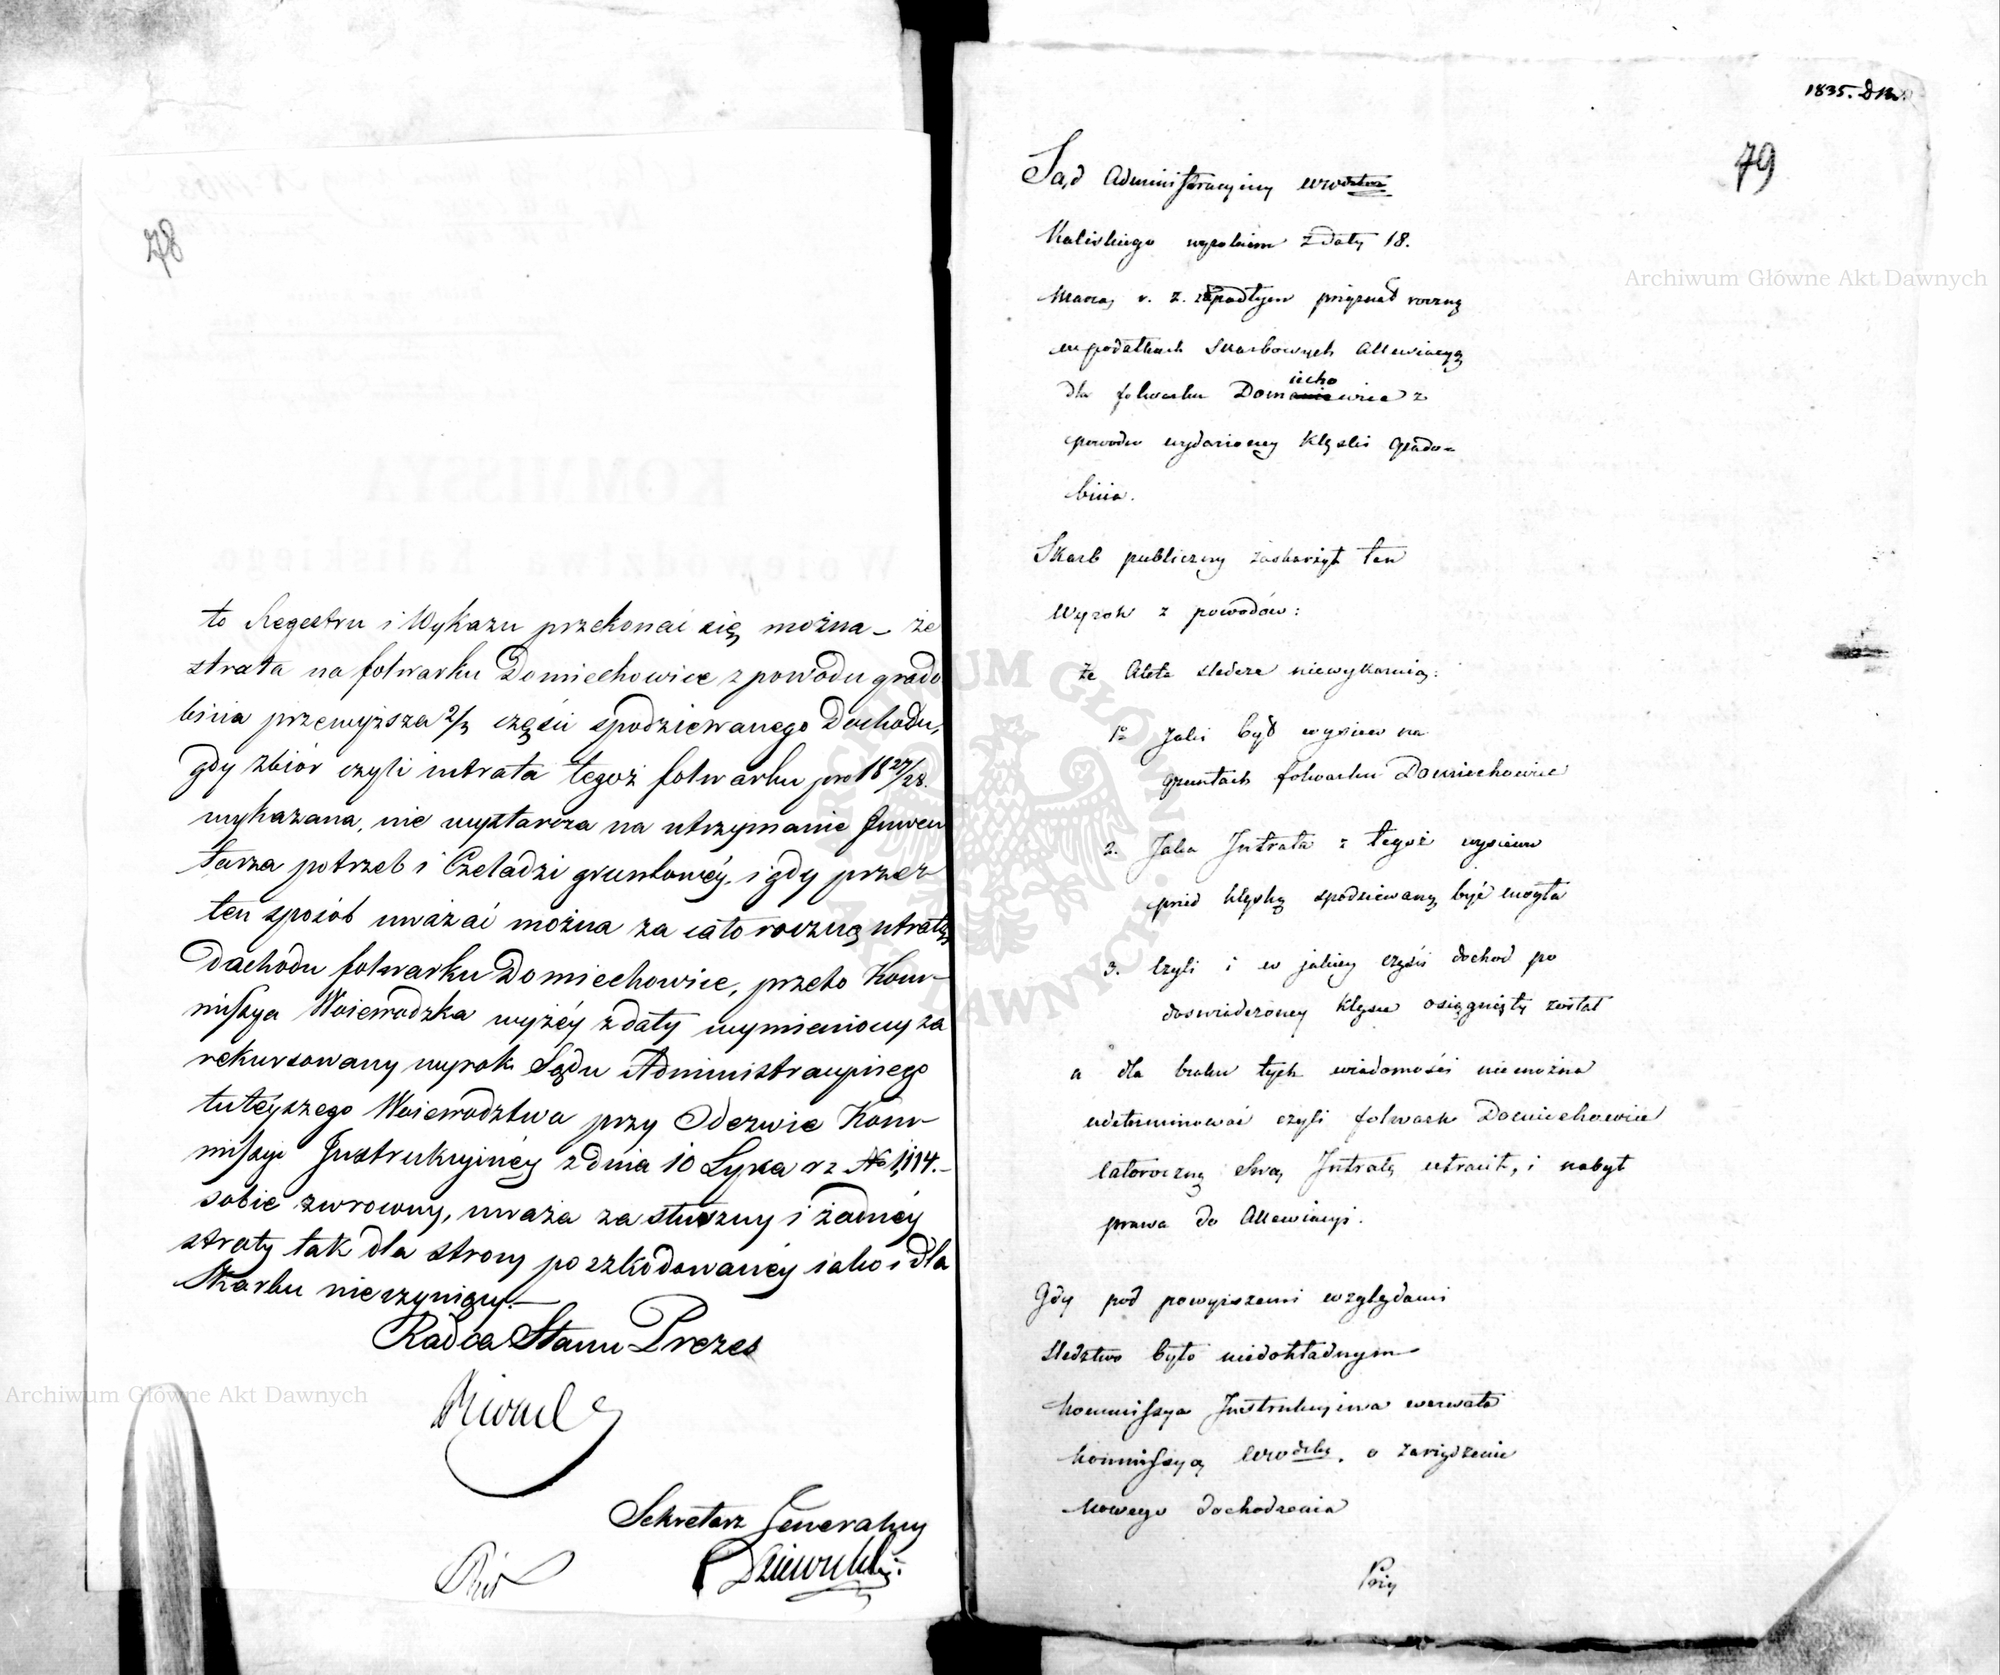 78
to Regestru i Wykazu przekonać się można – że
strata na folwarku Domiechowice z powodu grado
bicia przewyższa 2/3 części spodziewanego Dochodu,
gdy zbiór czyli intrata tegoż folwarku pro 1827/28.
wykazana, nie wystarcza na utrzymanie Inwen
tarza potrzeb i Czeladzi gruntowéy, i gdy przez
ten sposób uważać można za cało roczną utratę
dochodu folwarku Domiechowice, przeto Kom-
missya Woiewodzka wyżéy z daty wymieniony za
rekursowany wyrok Sądu Administracyinego
tuteyszego Woiewodztwa przy Odezwie Kom-
missyi Instrukcyinéy z dnia 10 Lipca r z No 1,114.-
sobie zwrocony, uważa za słuszny i żadnéy
straty tak dla strony poszkodowanéy iako i dla
Skarbu nieczyniący.–
Radca Stanu Prezes
Sekretarz Generalny
1835.
79
Sąd Administracyiny Wodztwa
Kaliskiego wyrokiem z daty 18.
Marca r. z. zapadłym przyznał roczną
w podatkach Skarbowych Allewiacyą
dla folwarku Domiechowice z
powodu wydarzoney Klęski Grado-
bicia.
Skarb publiczny zaskarżył ten
Wyrok z powodów:
że Akta śledcze niewykazuią:
1o Jaki był wysiew na
gruntach folwarku Domiechowice
2. Jaka Intrata z tegoż wysiewu
przed klęską spodziewaną być mogła
3. Czyli i w jakiey części dochod po
doswiadczoney Klęsce osiągnięty został
a dla braku tych wiadomości niemożna
udeterminować czyli folwark Domiechowice
całoroczną Swą Intratę utracił, i nabył
prawa do Allewiacyi.
Gdy pod powyższemi względami
śledztwo było niedokładnym
Kommissya Instrukcyina wezwała
Kommissyą Wodzką, o zarządzenie
Nowego dochodzenia
Przy
Archiwum Główne Akt Dawnych
Archiwum Główne Akt Dawnych
ARCHIWUM GŁÓWNE AKT DAWNYCH